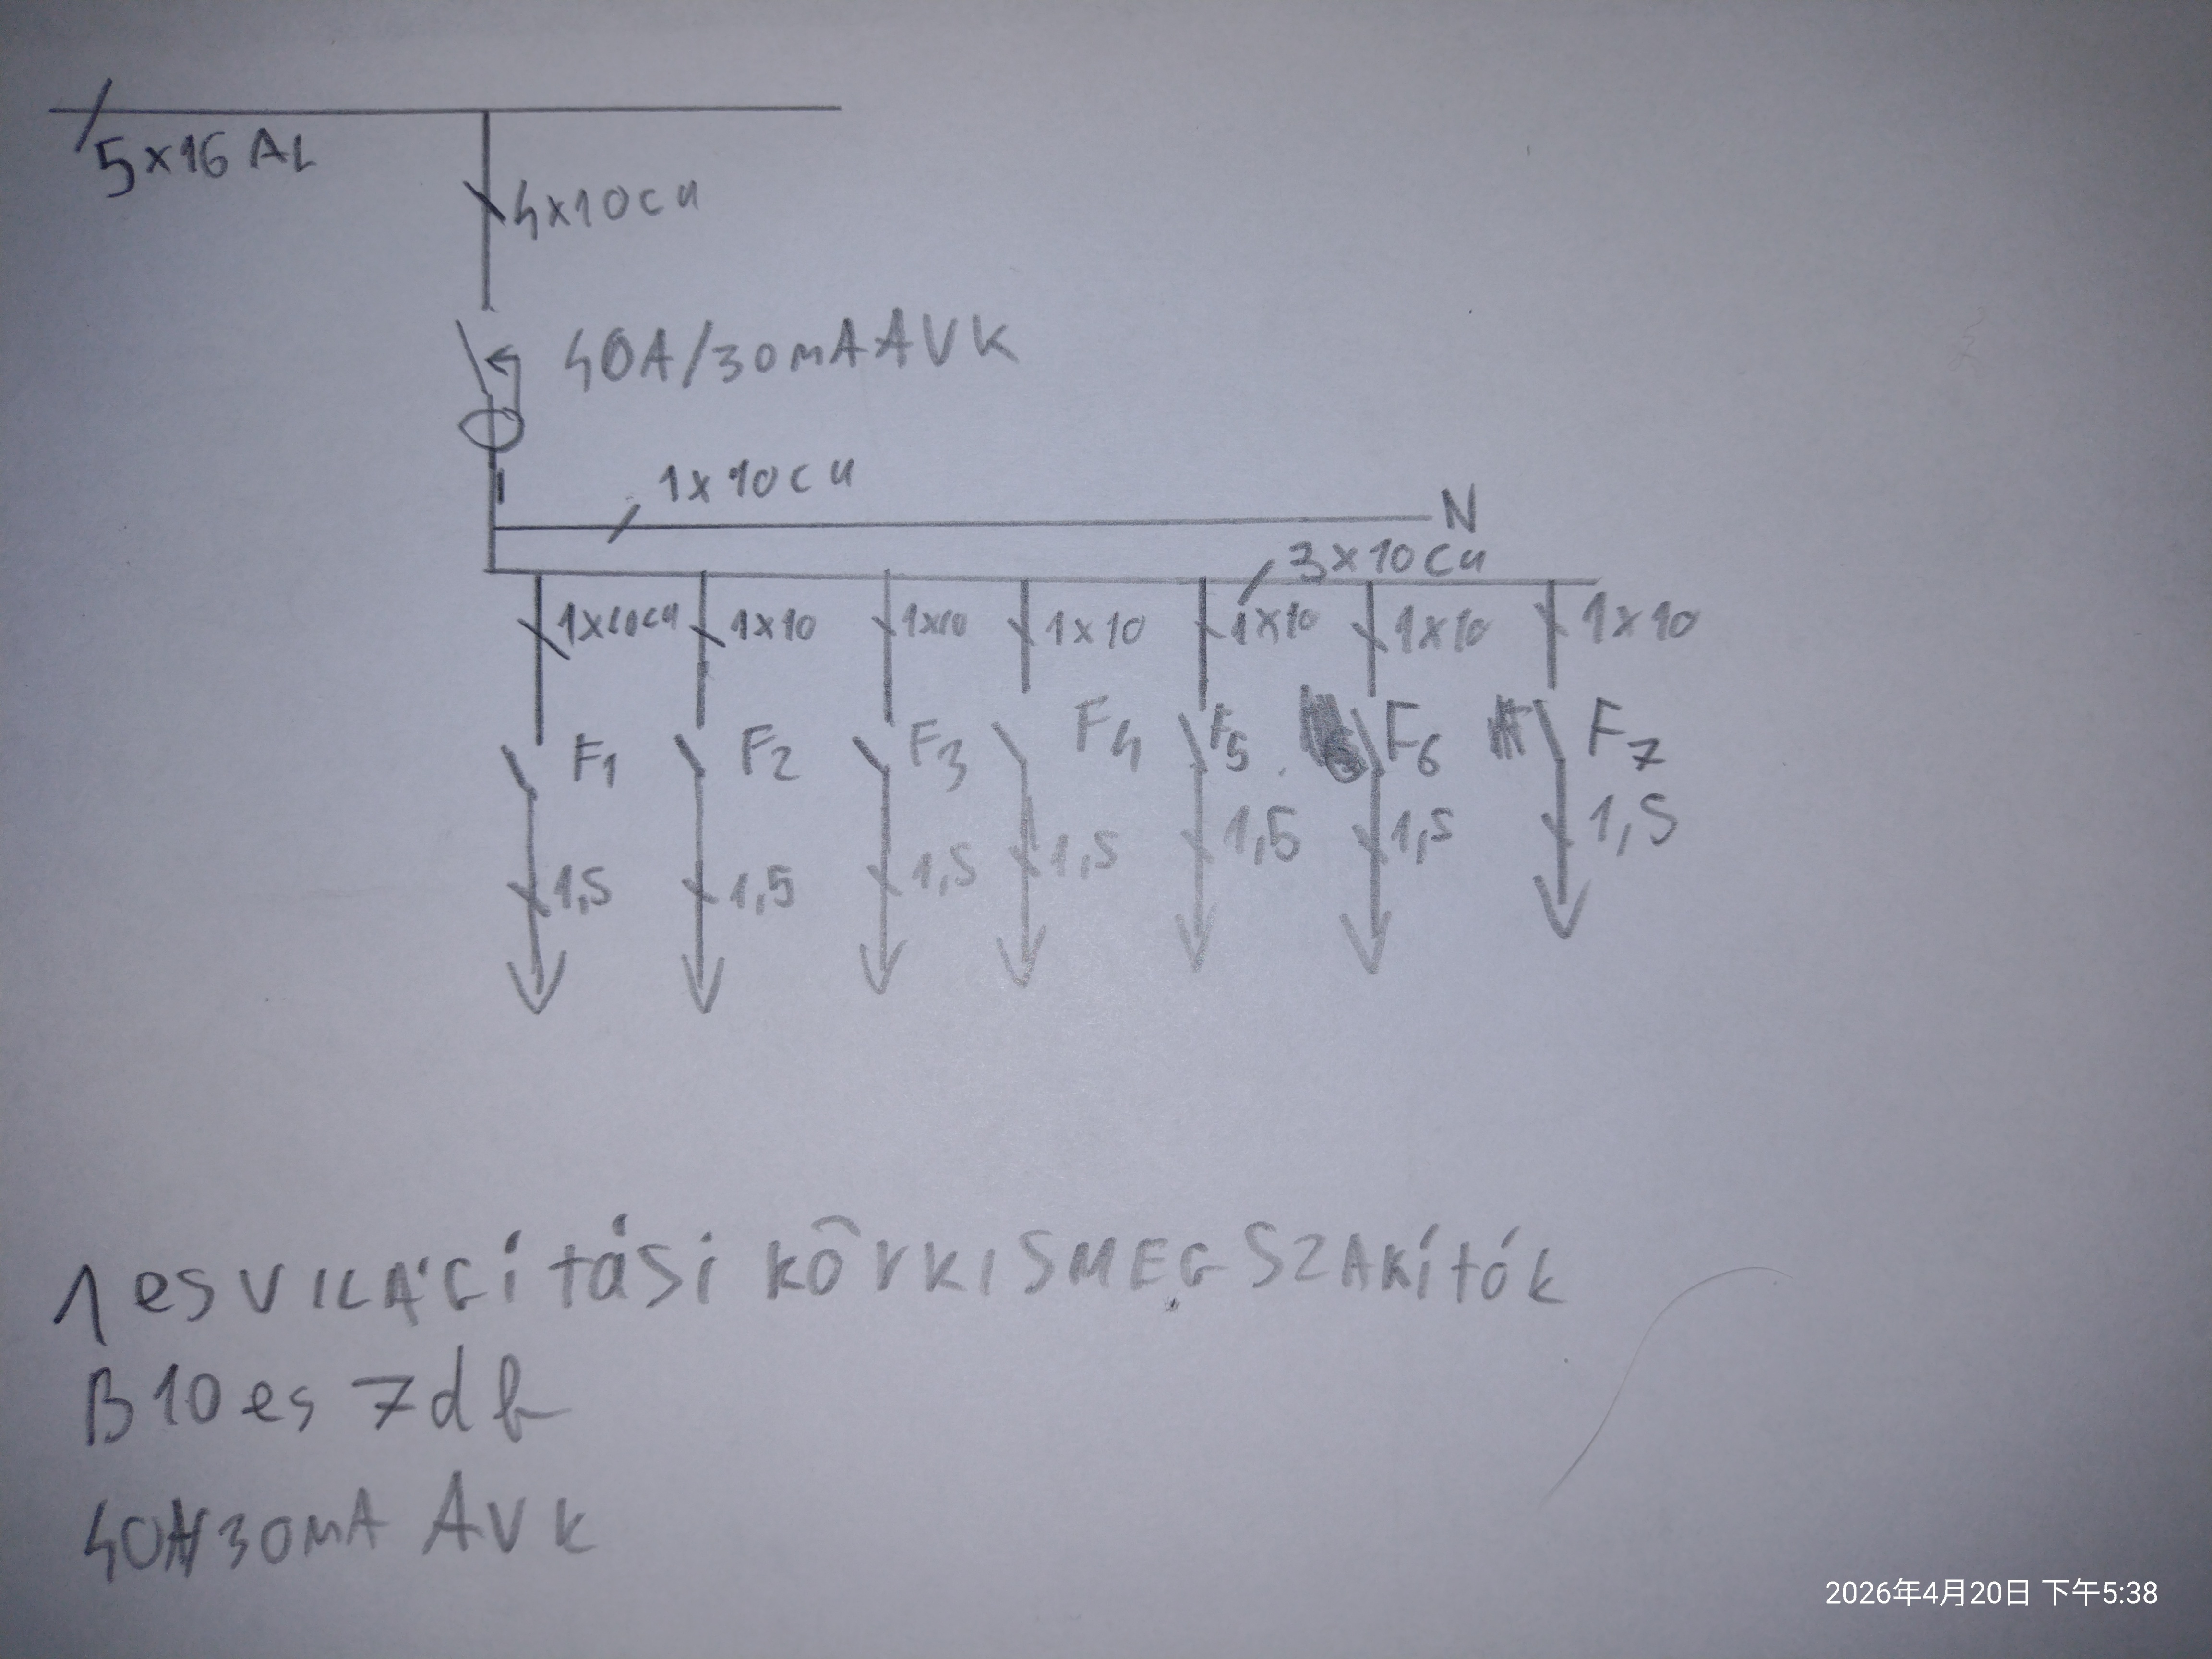 5x16 AL
4x10cu
40A/30mA AVK
1x10cu
N
3x10cu
1x10cu 1x10 1x10 1x10 1x10 1x10 1x10
F1 F2 F3 F4 F5 F6 F7
1,5 1,5 1,5 1,5 1,5 1,5 1,5
1es VILÁGítási kör KISMEGSZAKítók
B10es 7db
40A/30mA ÁVK
2026年4月20日 下午5:38